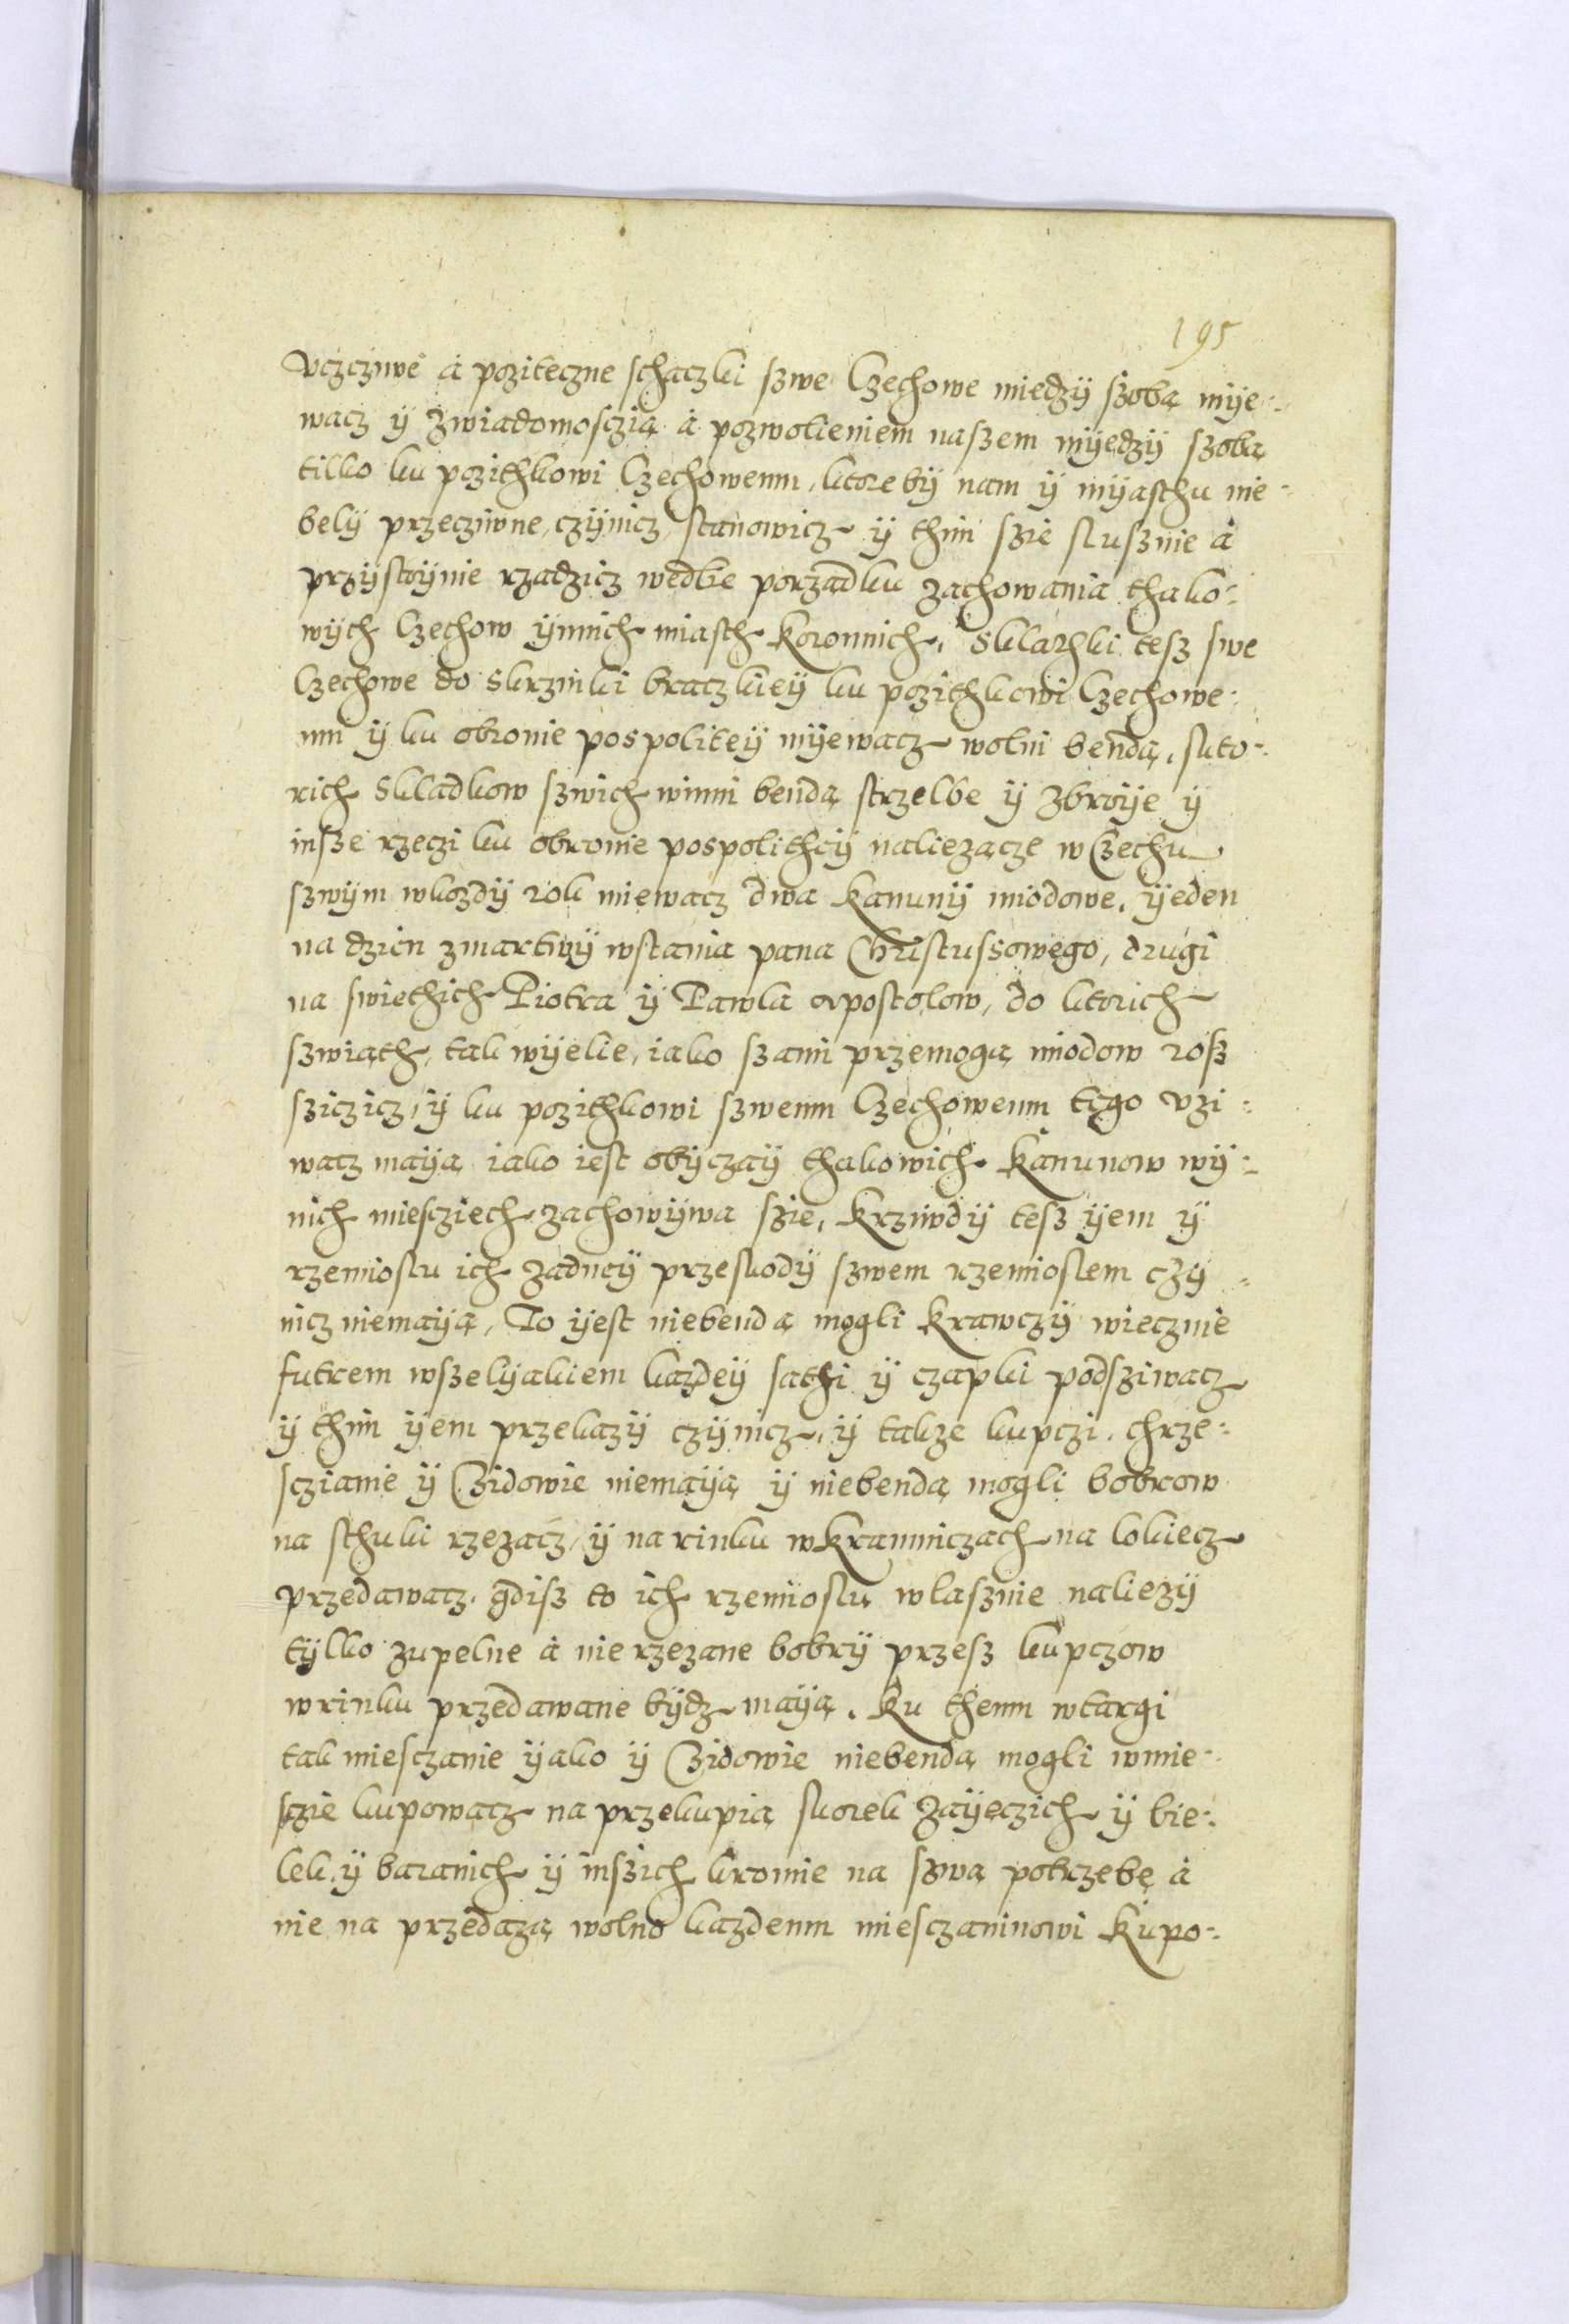 195
vczcziwe á poziteczne schaczki szwe Czechowe miedzÿ szobą mÿe-
wacz ÿ zwiadomosczią á pozwolieniem naszem mÿedzÿ szobą
tilko ku pozithkowi Czechowemu, ktore bÿ nam ÿ mÿasthu nie-
belÿ przecziwne, czÿnicz, stanowicz ÿ thim szie slusznie á
przÿstoÿnie rządzicz wedlie porządku zachowania thako-
wÿch Czechow ÿnnich miasth Koronnich. Skladzki tesz swe
Czechowe do skrzinki braczkieÿ ku pozithkowi Czechowe-
mu ÿ ku obronie pospoliteÿ mÿewacz wolni bendą, skto-
rich skladkow szwich winni bendą strzelbe ÿ zbroÿe ÿ
insze rzeczi ku obronie pospolitheÿ naliezącze w Czechu
szwÿm wkozdÿ rok miewacz dwa Kanunÿ miodowe, ÿeden
na dzien zmartwÿ wstania pana Christussowego, drugi
na swiethich Piotra ÿ Pawla apostolow, do ktorich
szwiąth, tak wÿelie, iako szami przemogą miodow rosz
sziczicz, ÿ ku pozithkowi szwemu Czechowemu tego vzi-
wacz maÿą iako iest obÿczaÿ thakowich Kanunow wÿ-
nich miescziech zachowÿwa szie, Krziwdÿ tesz ÿem ÿ
rzemioslu ich zadneÿ przeskodÿ szwem rzemioslem czÿ-
nicz niemaÿą, To ÿest niebendą mogli Krawczÿ wiecznie
futrem wszelÿakiem kazdeÿ sathi ÿ czapki podsziwacz
ÿ thim ÿem przekazÿ czÿnicz, ÿ takze kupczi, chrze-
sczianie ÿ Zidowie niemaÿą ÿ niebendą mogli bobrow
na sthuki rzezacz, ÿ na rinku wKramniczach na lokiecz
przedawacz, gdisz to ich rzemioslu wlasznie naliezÿ
tÿlko zupelne á nie rzezane bobrÿ przesz kupczow
wrinku przedawane bÿdz maÿą. Ku themu wtargi
tak miesczanie ÿako ÿ Zidowie niebendą mogli wmie-
sczie kupowacz na przekupią skorek zaÿęczich ÿ bie-
lek, ÿ baranich ÿ inszich kromie na szwą potrzebę á
nie na przedazą wolno kazdemu miesczaninowi Kupo-